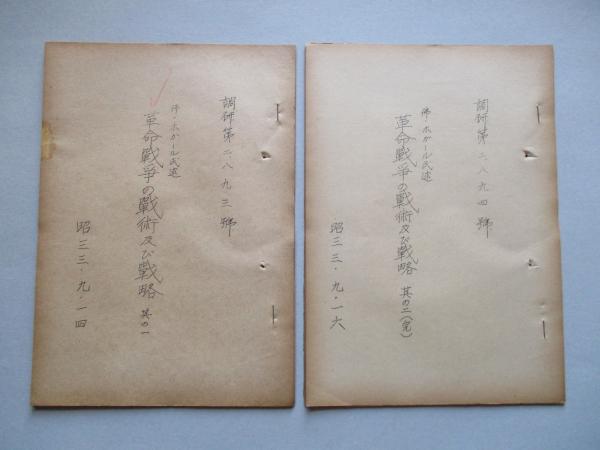 調研第二八九三號
佛・ホガール氏述
革命戰爭の戰術及び戰略 其の一
昭三三・九・一四
調研第二八九四號
佛・ホガール氏述
革命戰爭の戰術及び戰略 其の二(完)
昭三三・九・一六